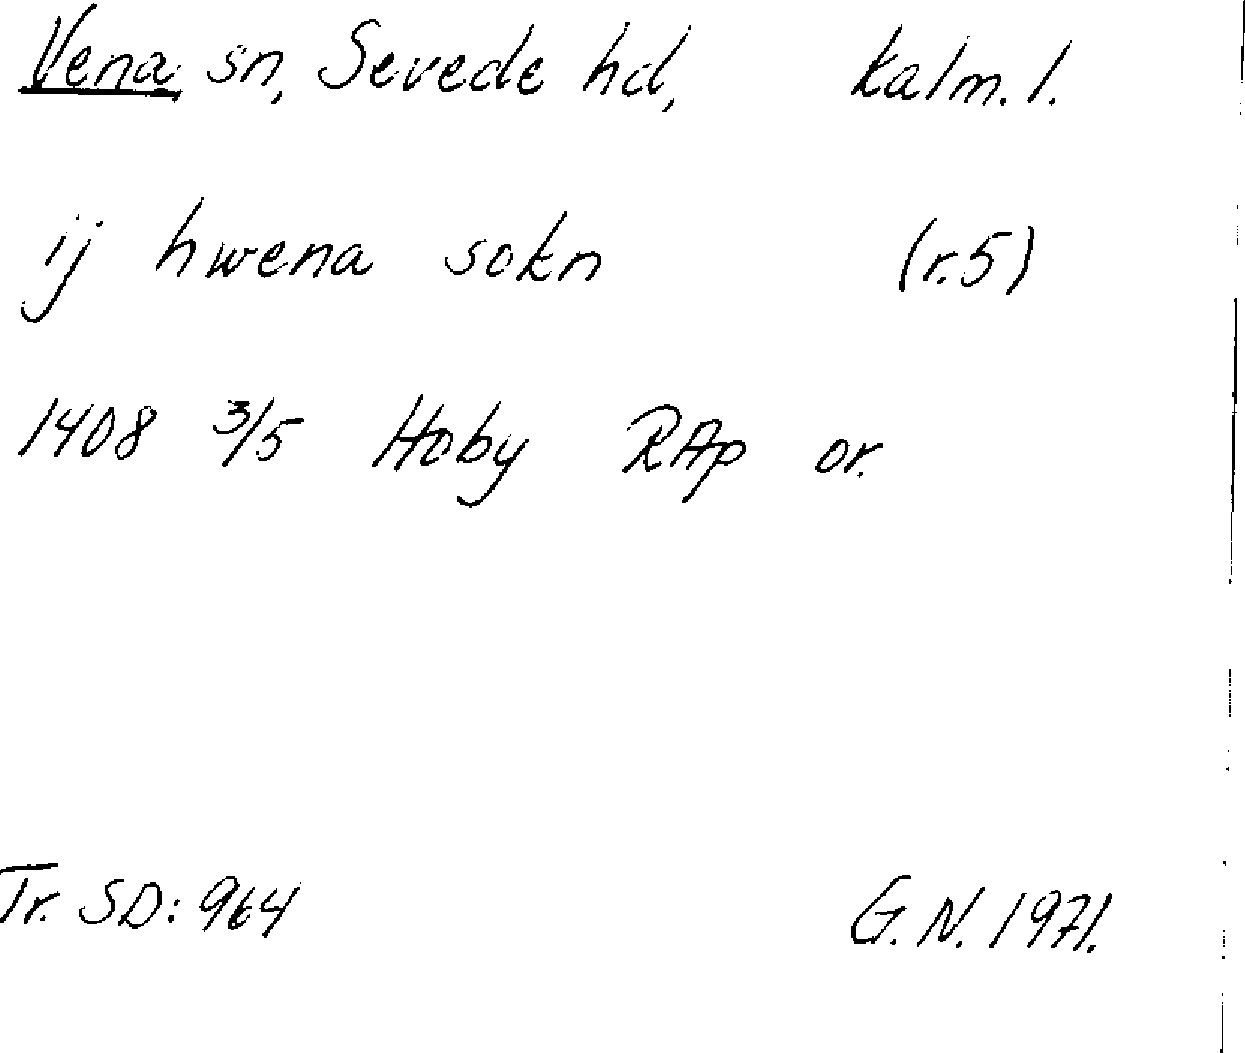 Vena sn, Sevede hd, Kalm. l.
ij hwena sokn (r.5)
1408 3/5 Hoby RAp or.
Tr. SD: 964 G.N. 1971.